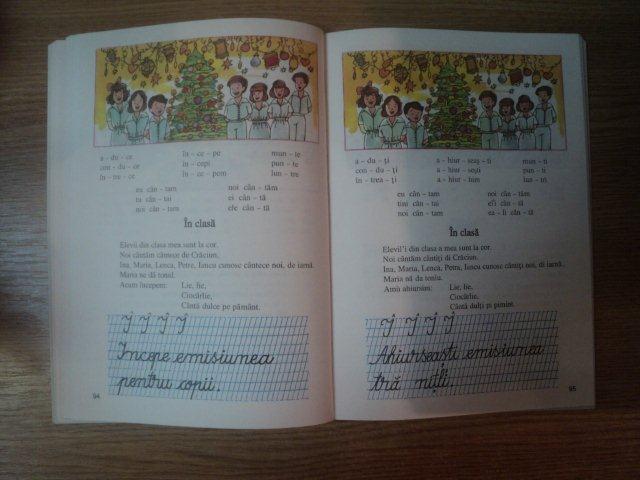 a – du – ce în – ce – pe mun – te
con – du – ce în – cepi pun – te
în – tre – ce în – ce – pem lun – tre
eu cân – tam noi cân – tăm
tu cân – tai ei cân – tă
noi cân – tam ele cân – tă
În clasă
Elevii din clasa mea sunt la cor.
Noi cântăm cântece de Crăciun.
Ina, Maria, Lenca, Petre, Iancu cunosc cântece noi, de iarnă.
Maria ne dă tonul.
Acum începem: Lie, lie,
Ciocârlie,
Cântă dulce pe pământ.
Î Î Î Î
Începe emisiunea
pentru copii.
94
a – du – ți a – hiur – seaș – ti mun – ti
con – du – ți a – hiur – sești pun – ti
în – trea – ți a – hiur – sim lun – tri
eu cân – tam noi cân – tăm
tini cân – tai cân – tă
noi cân – tam ea – li cân – tă
În clasă
Elevil'i din clasa a mea sunt la cor.
Noi cântăm cântiți di Crăciun.
Ina, Maria, Lenca, Petre, Iancu cunosc cântiți noi, di iarnă.
Maria nă da toniu.
Amù ahiursim: Lie, lie,
Ciocârlie,
Cântă dulți pi pimint.
Î Î Î Î
Ahiurseaști emisiunea
tră nițli.
95